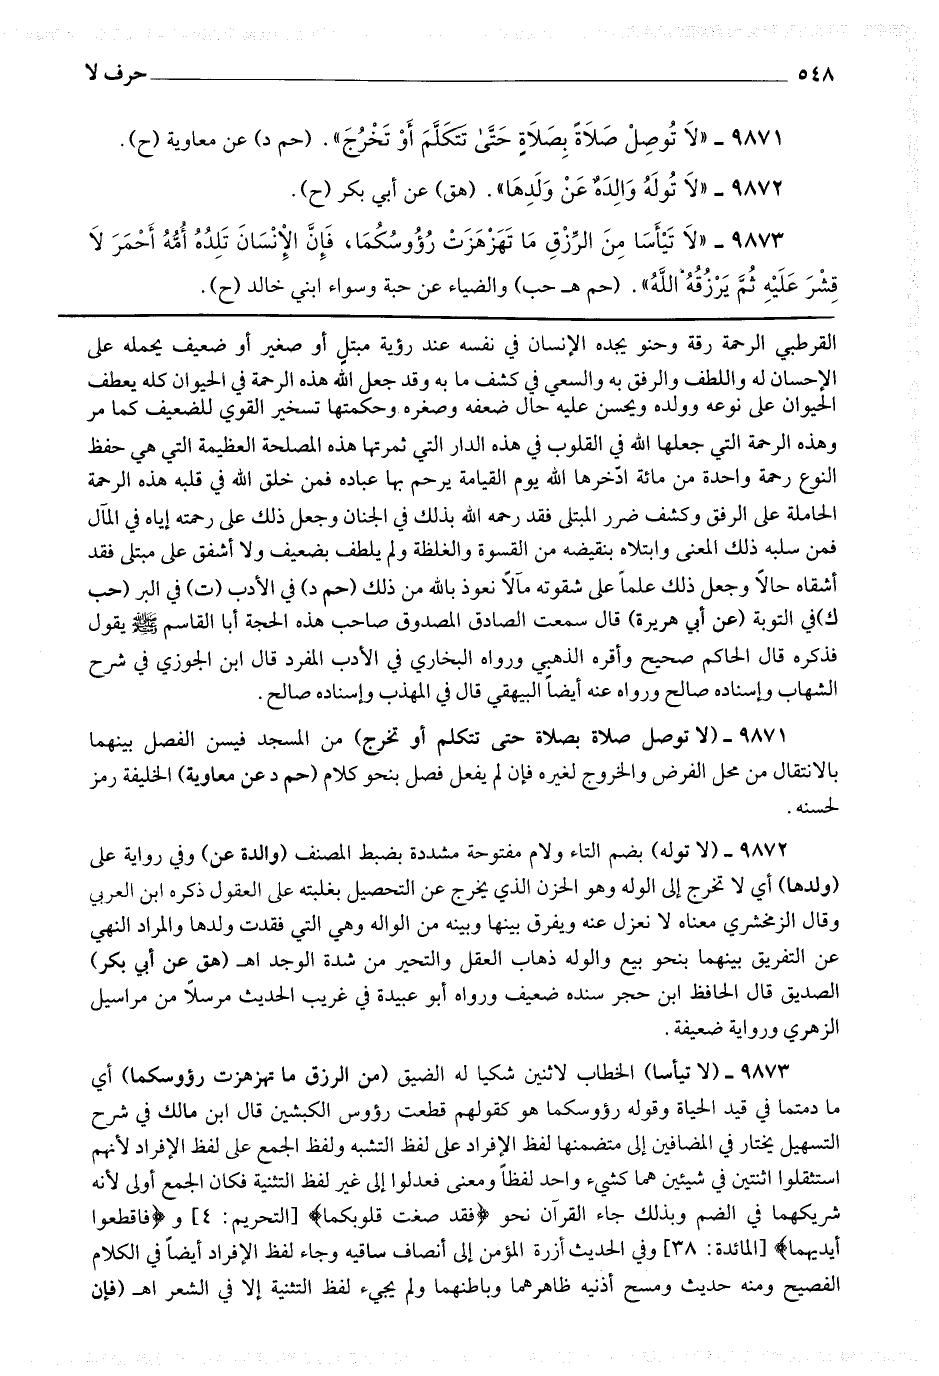 ٥٤٨ حرف لا
٩٨٧١ ـ «لَا تُوصِلْ صَلَاةً بِصَلَاةٍ حَتَّىٰ تَتَكَلَّمَ أَوْ تَخْرُجَ». (حم د) عن معاوية (ح).
٩٨٧٢ ـ «لَا تُولَهُ وَالِدَةٌ عَنْ وَلَدِهَا». (هق) عن أبي بكر (ح).
٩٨٧٣ ـ «لَا تَيْأَسَا مِنَ الرِّزْقِ مَا تَهَزْهَزَتْ رُؤُوسُكُمَا، فَإِنَّ الْإِنْسَانَ تَلِدُهُ أُمُّهُ أَحْمَرَ لَا
قِشْرَ عَلَيْهِ ثُمَّ يَرْزُقُهُ اللَّهُ». (حم هـ حب) والضياء عن حبة وسواء ابني خالد (ح).
القرطبي الرحمة رقة وحنو يجده الإنسان في نفسه عند رؤية مبتلٍ أو صغير أو ضعيف يحمله على
الإحسان له واللطف والرفق به والسعي في كشف ما به وقد جعل الله هذه الرحمة في الحيوان كله يعطف
الحيوان على نوعه وولده ويحسن عليه حال ضعفه وصغره وحكمتها تسخير القوي للضعيف كما مر
وهذه الرحمة التي جعلها الله في القلوب في هذه الدار التي ثمرتها هذه المصلحة العظيمة التي هي حفظ
النوع رحمة واحدة من مائة ادّخرها الله يوم القيامة يرحم بها عباده فمن خلق الله في قلبه هذه الرحمة
الحاملة على الرفق وكشف ضرر المبتلى فقد رحمه الله بذلك في الجنان وجعل ذلك على رحمته إياه في المآل
فمن سلبه ذلك المعنى وابتلاه بنقيضه من القسوة والغلظة ولم يلطف بضعيف ولا أشفق على مبتلى فقد
أشقاه حالاً وجعل ذلك علماً على شقوته مآلاً نعوذ بالله من ذلك (حم د) في الأدب (ت) في البر (حب
ك)في التوبة (عن أبي هريرة) قال سمعت الصادق المصدوق صاحب هذه الحجة أبا القاسم ﷺ يقول
فذكره قال الحاكم صحيح وأقره الذهبي ورواه البخاري في الأدب المفرد قال ابن الجوزي في شرح
الشهاب وإسناده صالح ورواه عنه أيضاً البيهقي قال في المهذب وإسناده صالح.
٩٨٧١ ـ (لا توصل صلاة بصلاة حتى تتكلم أو تخرج) من المسجد فيسن الفصل بينهما
بالانتقال من محل الفرض والخروج لغيره فإن لم يفعل فصل بنحو كلام (حم د عن معاوية) الخليفة رمز
لحسنه.
٩٨٧٢ ـ (لا توله) بضم التاء ولام مفتوحة مشددة بضبط المصنف (والدة عن) وفي رواية على
(ولدها) أي لا تخرج إلى الوله وهو الحزن الذي يخرج عن التحصيل بغلبته على العقول ذكره ابن العربي
وقال الزمخشري معناه لا نعزل عنه ويفرق بينها وبينه من الواله وهي التي فقدت ولدها والمراد النهي
عن التفريق بينهما بنحو بيع والوله ذهاب العقل والتحير من شدة الوجد اهـ (هق عن أبي بكر)
الصديق قال الحافظ ابن حجر سنده ضعيف ورواه أبو عبيدة في غريب الحديث مرسلاً من مراسيل
الزهري ورواية ضعيفة.
٩٨٧٣ ـ (لا تيأسا) الخطاب لاثنين شكيا له الضيق (من الرزق ما تهزهزت رؤوسكما) أي
ما دمتما في قيد الحياة وقوله رؤوسكما هو كقولهم قطعت رؤوس الكبشين قال ابن مالك في شرح
التسهيل يختار في المضافين إلى متضمنها لفظ الإفراد على لفظ التشبه ولفظ الجمع على لفظ الإفراد لأنهم
استثقلوا اثنتين في شيئين هما كشيء واحد لفظاً ومعنى فعدلوا إلى غير لفظ التثنية فكان الجمع أولى لأنه
شريكهما في الضم وبذلك جاء القرآن نحو ﴿فقد صغت قلوبكما﴾ [التحريم: ٤] و ﴿فاقطعوا
أيديهما﴾ [المائدة: ٣٨] وفي الحديث أزرة المؤمن إلى أنصاف ساقيه وجاء لفظ الإفراد أيضاً في الكلام
الفصيح ومنه حديث ومسح أذنيه ظاهرهما وباطنهما ولم يجيء لفظ التثنية إلا في الشعر اهـ (فإن